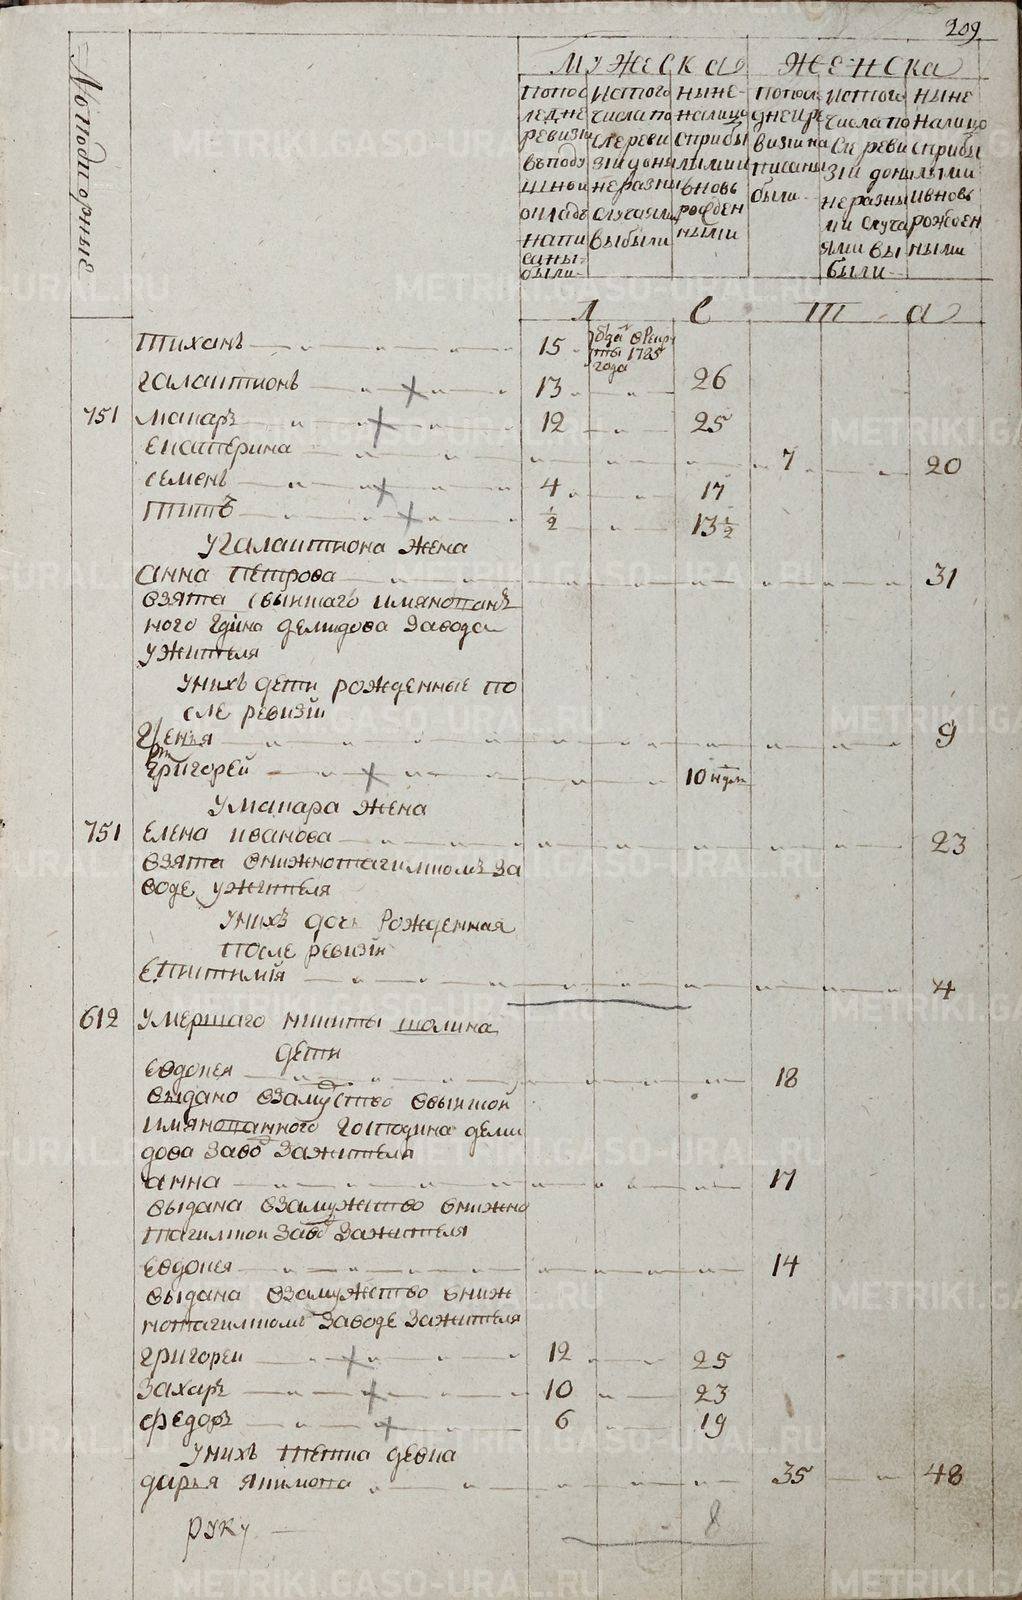 209
№ подворные
Мужеска Женска
попос ледне ревизи въподу шной окладъ напи саны были
исτого числа по слереви зіи доны неразны случаями выбыли
ныне налицо сприбы лыми и вновь рожден ными
попосл дней ре визии на писаны были
истого числа по сле реви зіи доны неразны ми случа ями вы были
ныне налицо сприбы лыми ивновь рожден ными
Л е т а
Тиханъ 15 1785 года
Галактионъ 13 26
751 Макаръ 12 25
Екатерина 7 20
Семенъ 4 17
Титъ ½ 13½
Угалактиона жена
Анна Петрова 31
взята
ного Гдина Демидова завода
ужителя
Унихъ дети рожденные по
сле ревизіи
9
Григорей 10 недел
Умакара жена
751 Елена Иванова 23
взята внижнотагилскомъ за
воде ужителя
Унихъ дочь рожденная
после ревизіи
Епистимія 4
612 Умершаго Никиты Шолина
дети
Евдокея 18
выдано взамуство
имянованного господина Деми
дова завод зажителя
Анна 17
выдана взамужество внижно
тагилской завод зажителя
Евдокея 14
выдана взамужество внижно
нотагилскомъ заводе зажителя
Григорей 12 25
Захаръ 10 23
Федоръ 6 19
Унихъ тетка девка
Дарья Якимова 35 48
8
руку
METRIKI.GASO-URAL.RU